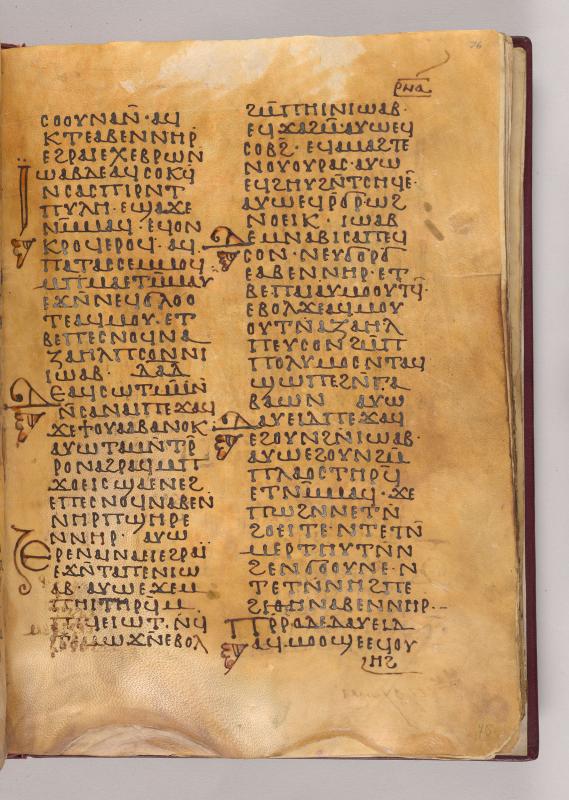 ⲣⲛⲁ
ⲥⲟⲟⲩⲛⲁⲛ̄· ⲁϥ
ⲕⲧⲉⲁⲃⲉⲛⲛⲏⲣ
ⲉϩⲣⲁⲓⲉⲭⲉⲃⲣⲱⲛ
ⲓ̈ⲱⲁⲃⲇⲉⲁϥⲥⲟⲕϥ̄
ⲛⲥⲁⲥⲡⲓⲣⲛⲧ
ⲡⲩⲗⲏ· ⲉϣⲁϫⲉ
ⲛⲙ̄ⲙⲁϥ· ⲉϥⲟⲛ
ⲕⲣⲟϥⲉⲣⲟϥ· ⲁϥ
ⲡⲁⲧⲁⲥⲥⲉⲙⲙⲟϥ
ⲙⲡⲙⲁⲉⲧⲙ̄ⲙⲁⲩ
ⲉϫⲛ̄ⲛⲉϥϭⲗⲟⲟ
ⲧⲉⲁϥⲙⲟⲩ· ⲉⲧ
ⲃⲉⲡⲉⲥⲛⲟϥⲛⲁ
ⲍⲁⲏⲗⲡⲥⲟⲛⲛⲓ
ⲓ̈ⲱⲁⲃ· ⲇⲁⲇ
ⲇⲉⲁϥⲥⲱⲧⲙ̄ⲙⲛ̄
ⲛ̄ⲥⲁⲛⲁⲓⲡⲉϫⲁϥ
ϫⲉϯⲟⲩⲁⲁⲃⲁⲛⲟⲕ
ⲁⲩⲱⲧⲁⲙⲛ̄ⲧⲣ̄
ⲣⲟⲛⲁϩⲣⲁϥⲙⲡ
ϫⲟⲉⲓⲥϣⲁⲉⲛⲉϩ
ⲉⲡⲉⲥⲛⲟϥⲛⲁⲃⲉⲛ
ⲛⲏⲣⲡϣⲏⲣⲉ
ⲛⲛⲏⲣ· ⲁⲩⲱ
ⲉⲣⲉⲛⲁⲓⲛⲁⲉⲓⲉϩⲣⲁⲓ̈
ⲉϫⲛ̄ⲧⲁⲡⲉⲛⲓⲱ
ⲁⲃ· ⲁⲩⲱⲉϫⲉⲙ
ⲡⲏⲓⲧⲏⲣϥⲙ
ⲡⲉϥⲉⲓⲱⲧ· ⲛϥ
ⲧⲙⲱϫⲛ̄ⲉⲃⲟⲗ
ϩⲙ̄ⲡⲏⲓⲛⲓⲱⲁⲃ·
ⲉϥϫⲁϩⲙⲁⲩⲱⲉϥ
ⲥⲟⲃϩ̄· ⲉϥⲁⲙⲁϩⲧⲉ
ⲛⲟⲩⲟⲩⲣⲁⲥ· ⲁⲩⲱ
ⲉϥϩⲏⲩϩⲛ̄ⲧⲥⲏϥⲉ·
ⲁⲩⲱⲉϥⲣϭⲣⲱϩ
ⲛⲟⲉⲓⲕ· ⲓⲱⲁⲃ
ⲇⲉⲙⲛⲁⲃⲓⲥⲁⲡⲉϥ
ⲥⲟⲛ· ⲛⲉⲩϭⲟⲣϭ
ⲉⲁⲃⲉⲛⲛⲏⲣ· ⲉⲧ
ⲃⲉⲡⲁⲓⲁⲩⲙⲟⲟⲩⲧϥ̄·
ⲉⲃⲟⲗϫⲉⲁϥⲙⲟⲩ
ⲟⲩⲧⲛ̄ⲁⲍⲁⲏⲗ
ⲡⲉⲩⲥⲟⲛϩⲙ̄ⲡ
ⲡⲟⲗⲩⲙⲟⲥⲛⲧⲁϥ
ϣⲱⲡⲉϩⲛ̄ⲅⲁ
ⲃⲁⲱⲛ ⲁⲩⲱ
ⲇⲁⲩⲉⲓⲇⲡⲉϫⲁϥ
ⲉϩⲟⲩⲛϩⲛ̄ⲓⲱⲁⲃ·
ⲁⲩⲱⲉϩⲟⲩⲛϩⲙ̄
ⲡⲗⲁⲟⲥⲧⲏⲣϥ̄
ⲉⲧⲛⲙ̄ⲙⲁϥ· ϫⲉ
ⲡⲱϩⲛⲛⲉⲧⲛ̄
ϩⲟⲉⲓⲧⲉ· ⲛⲧⲉⲧⲛ̄
ⲙⲉⲣⲧⲏⲩⲧⲛⲛ
ϩⲉⲛϭⲟⲟⲩⲛⲉ· ⲛ
ⲧⲉⲧⲛ̄ⲛⲉϩⲡⲉ
ϩⲓⲑⲏⲛⲁⲃⲉⲛⲛⲏⲣ·
ⲡⲣ̄ⲣⲟⲇⲉⲇⲁⲩⲉⲓⲇ
ⲁϥⲙⲟⲟϣⲉⲉϥⲟⲩ
ⲏϩ